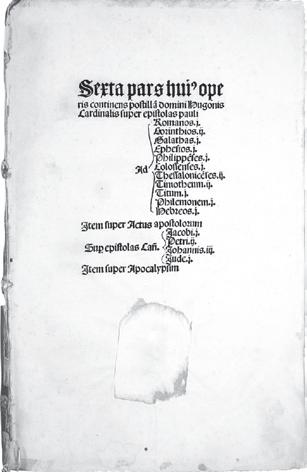 Sexta pars huiꝰ ope
ris continens postillā domini Hugonis
Cardinalis super epistolas pauli
Romanos.j.
Corinthios.ij.
Galathas.j.
Ephesios.j.
Philippēses.j.
Ad Colossenses.j.
Thessalonicēses.ij.
Timotheum.ij.
Titum.j.
Philemonem.j.
Hebreos.j.
Item super Actus apostolorum
Jacobi.j.
Petri.ij.
Sup epistolas Cañ. Johannis.iij.
Jude.j.
Item super Apocalypsim